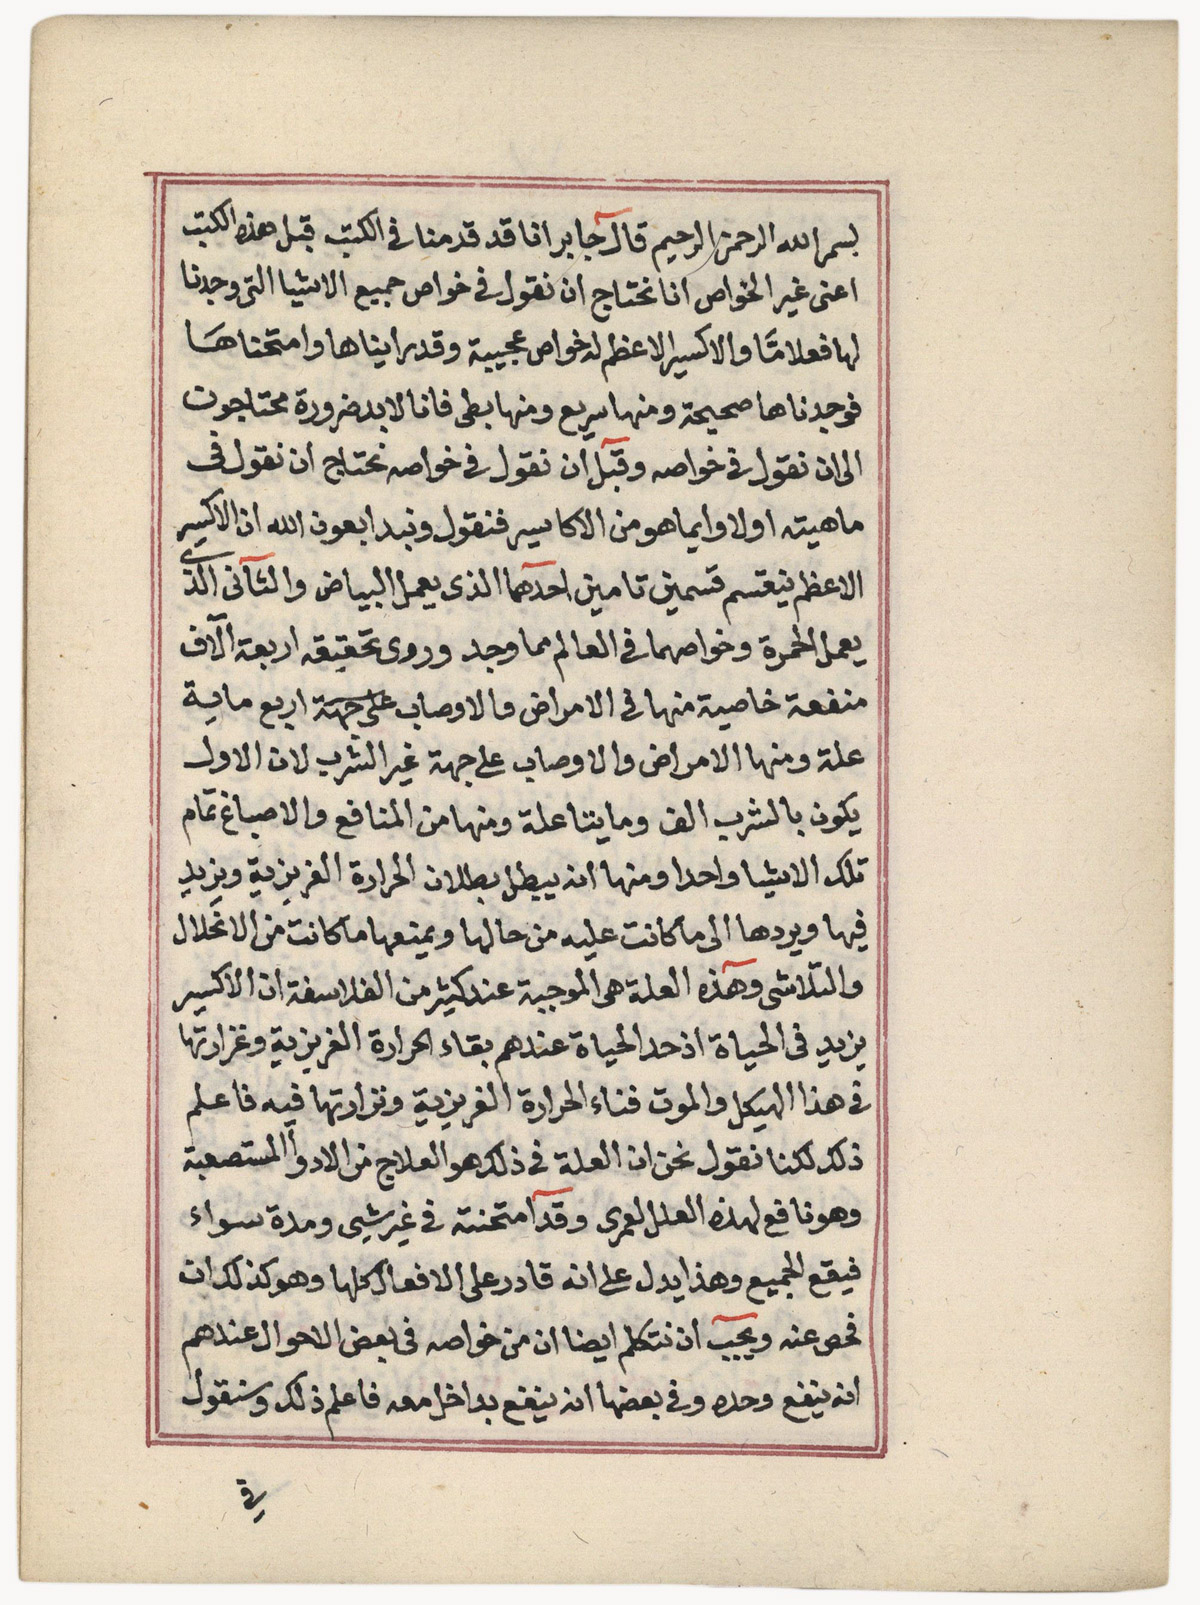 بسم الله الرحمن الرحيم قال جابر انا قد قدمنا في الكتب قبل هذه الكتب
اعنى غير الخواص انا نحتاج ان نقول في خواص جميع الاشيا التي وجدنا
لها فعلا مّا والاكسير الاعظم له خواص عجيبة وقد رايناها وامتحناها
فوجدناها صحيحة ومنها سريع ومنها بطى فانا لابد ضرورة محتاجون
الى ان نقول في خواصه وقبل ان نقول في خواصه نحتاج ان نقول في
ماهيته اولا وايما هو من الاكاسير فنقول ونبدا بعون الله ان الاكسير
الاعظم ينقسم قسمين تامين احدهما الذى يعمل البياض والثانى الذى
يعمل الحمرة وخواصهما في العالم مما وجد وروى تحقيقه اربعة آلاف
منفعة خاصية منها في الامراض والاوصاب على جهة اربع ماية
علة ومنها الامراض والاوصاب على جهة غير الشرب لان الاول
يكون بالشرب الف ومايتا علة ومنها من المنافع والاصباغ تمام
تلك الاشيا واحدا ومنها انه يبطل بطلان الحرارة الغريزية ويزيد
فيها ويردها الى ما كانت عليه من حالها ويمنعها ما كانت من الانحلال
والتلاشى وهذه العلة هى الموجبة عند كثير من الفلاسفة ان الاكسير
يزيد فى الحياة اذ حد الحياة عندهم بقاء الحرارة الغريزية وغزارتها
في هذا الهيكل والموت فناء الحرارة الغريزية ونزارتها فيه فاعلم
ذلك لكنا نقول نحن ان العلة في ذلك هو العلاج من الادوأ المستصعبة
وهو نافع لهذه العلل لعمرى وقد امتحنته في غير شيى ومدة سواء
فيقع الجميع وهذا يدل على انه قادر على الافعال كلها وهو كذلك ان
فحص عنه ويجب ان نتكلم ايضا ان من خواصه فى بعض الاحوال عندهم
انه ينفع وحده وفى بعضها انه ينفع بداخل معه فاعلم ذلك وسنقول
في